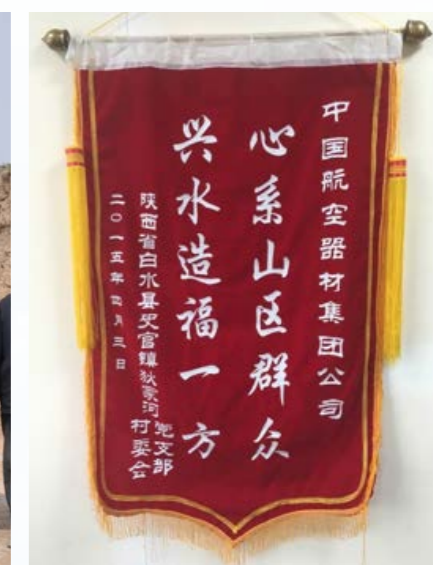 中国航空器材集团公司
心系山区群众
兴水造福一方
陕西省白水县史官镇狄家河党支部
村委会
二〇一五年四月三日